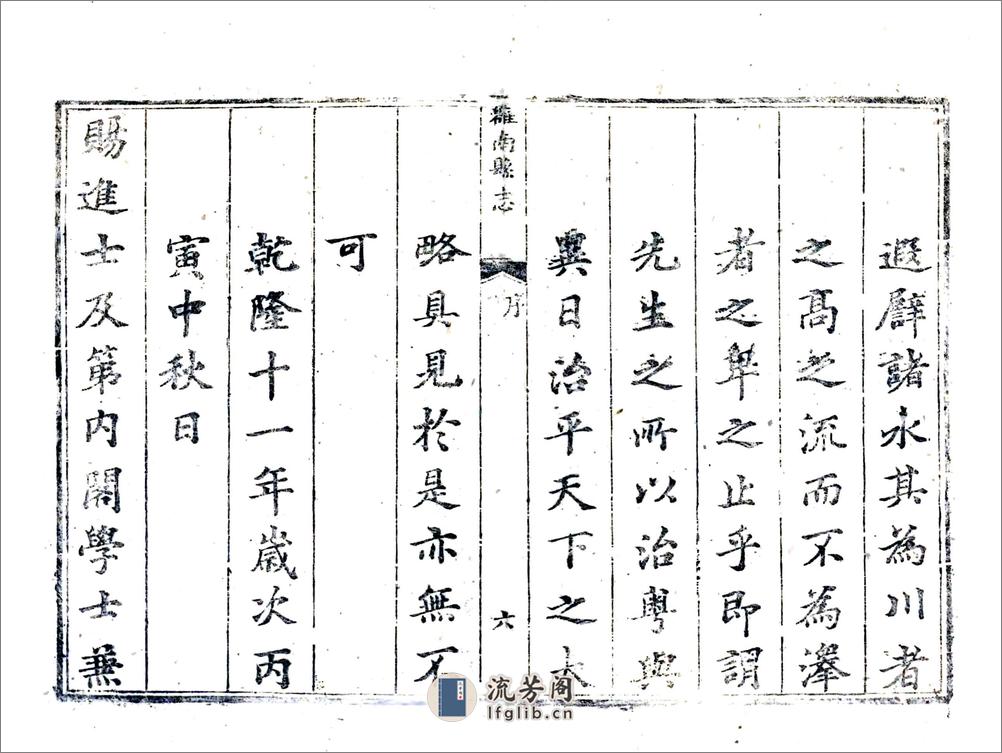 遐譬諸水其為川者
之高之流而不為澤
者之卑之止乎即謂
先生之所以治粵與
異日治平天下之大
雒南縣志
序
六
略具見於是亦無不
可
乾隆十一年歲次丙
寅中秋日
賜進士及第内閣學士兼
流芳阁
lfglib.cn